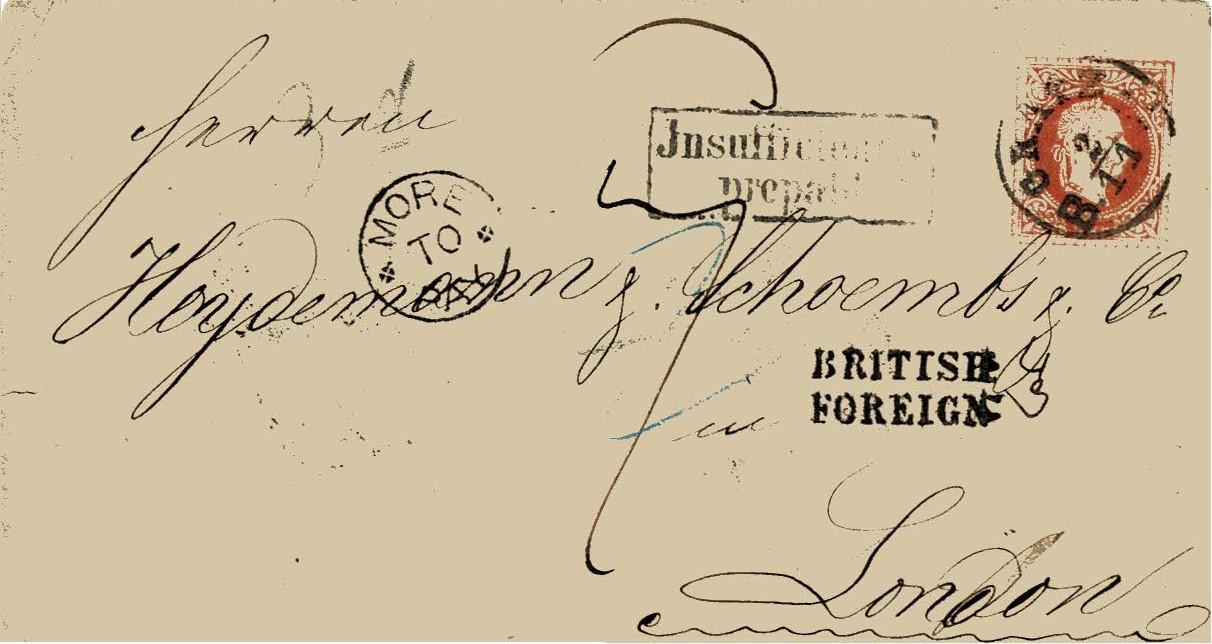 Herren
Insufficiently
prepaid
MORE
TO
PAY
Heydemann & Schoembs & Co
BRITISH
FOREIGN
in
London